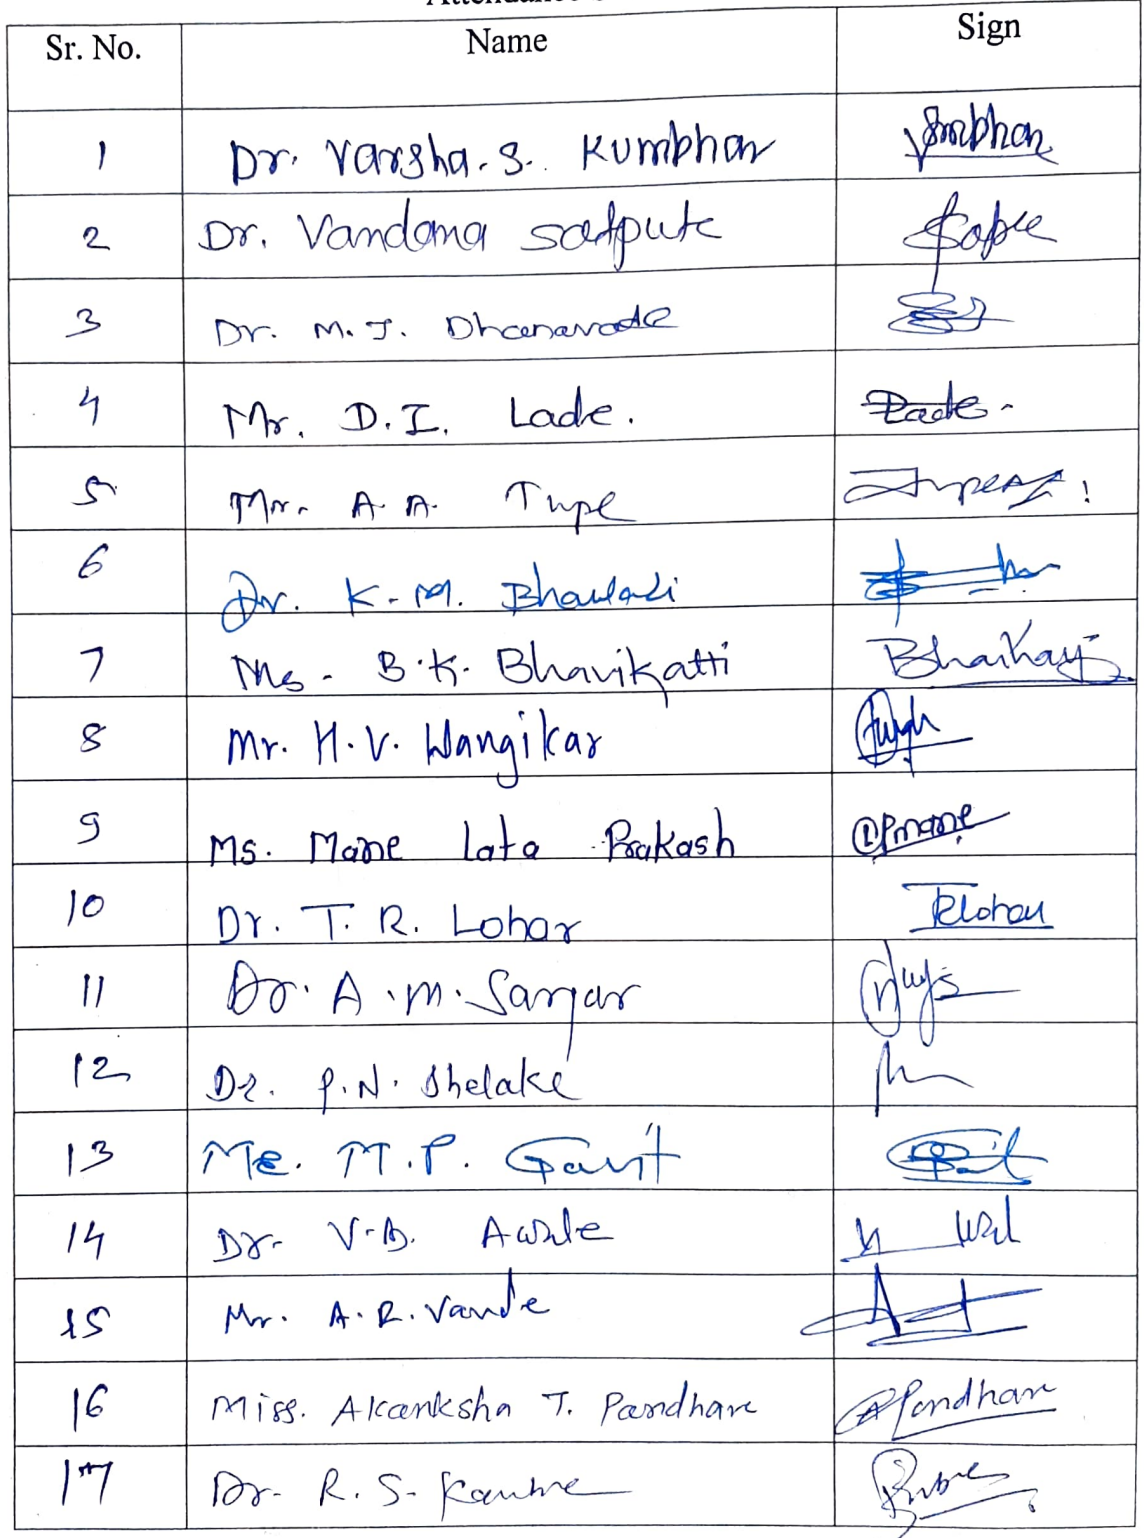 Sr. No. Name Sign
1 Dr. Varsha. S. Kumbhar Kumbhar
2 Dr. Vandana Satpute
3 Dr. M. J. Dhanavade
4 Mr. D. I. Lade. Lade.
5 Mr. A. A. Tupe
6 Dr. K. M.
7 Ms. B. K. Bhavikatti
8 Mr. H. V. Wangikar
9 Ms. Mane lata Prakash LPmane
10 Dr. T. R. Lohar TRLohar
11 Dr. A. M. Sargar
12 Dr. P. N. Shelake
13 Mr. M. P. Gavit
14 Dr. V. B. Awale
15 Mr. A. R. Vande
16 Miss. Akanksha T. Pandhare APandhare
17 Dr. R. S.